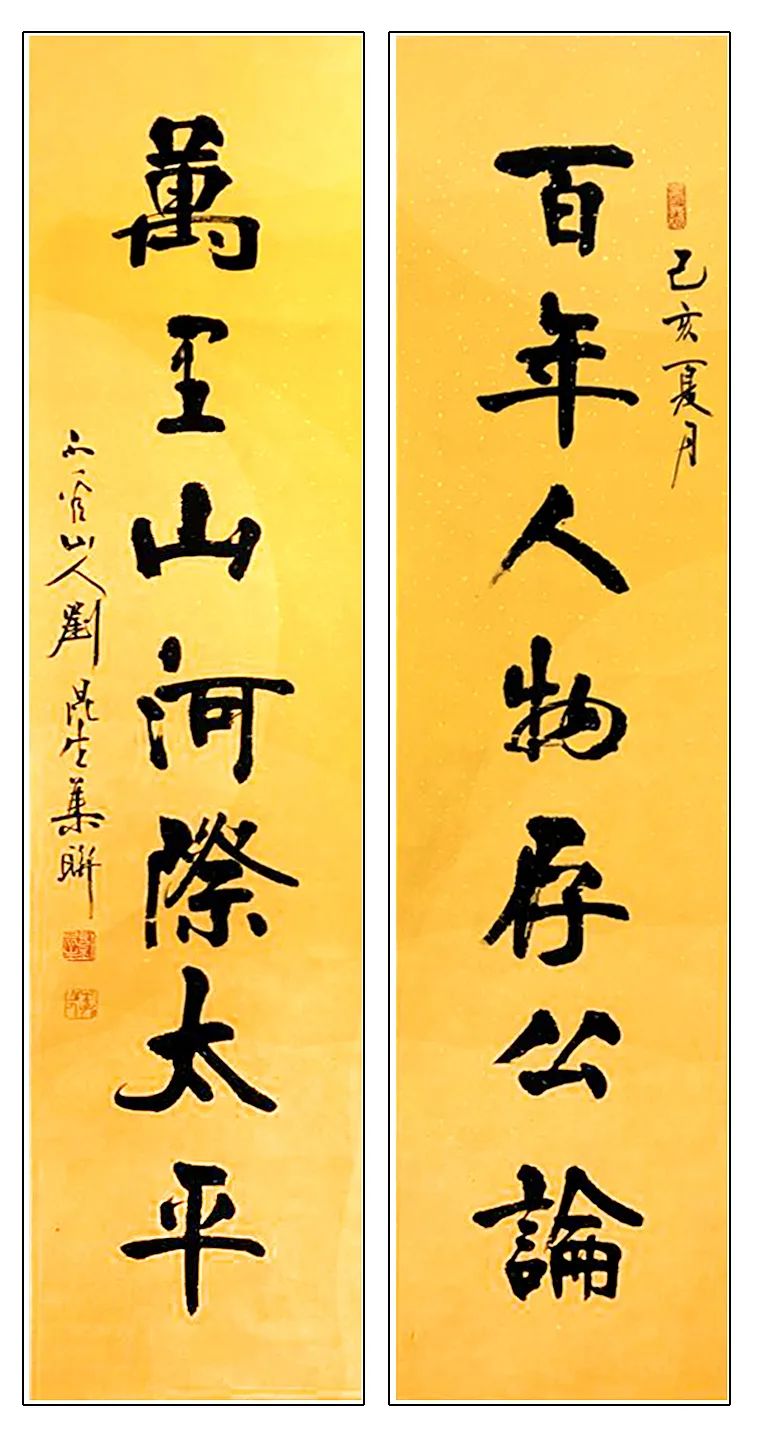 己亥夏月
百年人物存公論
萬里山河際太平
山人劉昆生集聯